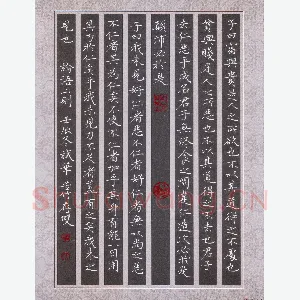 子曰富與貴是人之所欲也不以其道得之不處也
貧與賤是人之所惡也不以其道得之不去也君子
去仁惡乎成名君子無終食之間違仁造次必於是
顛沛必於是
子曰我未見好仁者惡不仁者好仁者無以尚之惡
不仁者其為仁矣不使不仁者加乎其身有能一日用
其力於仁矣乎我未見力不足者蓋有之矣我未之
見也 論語二則